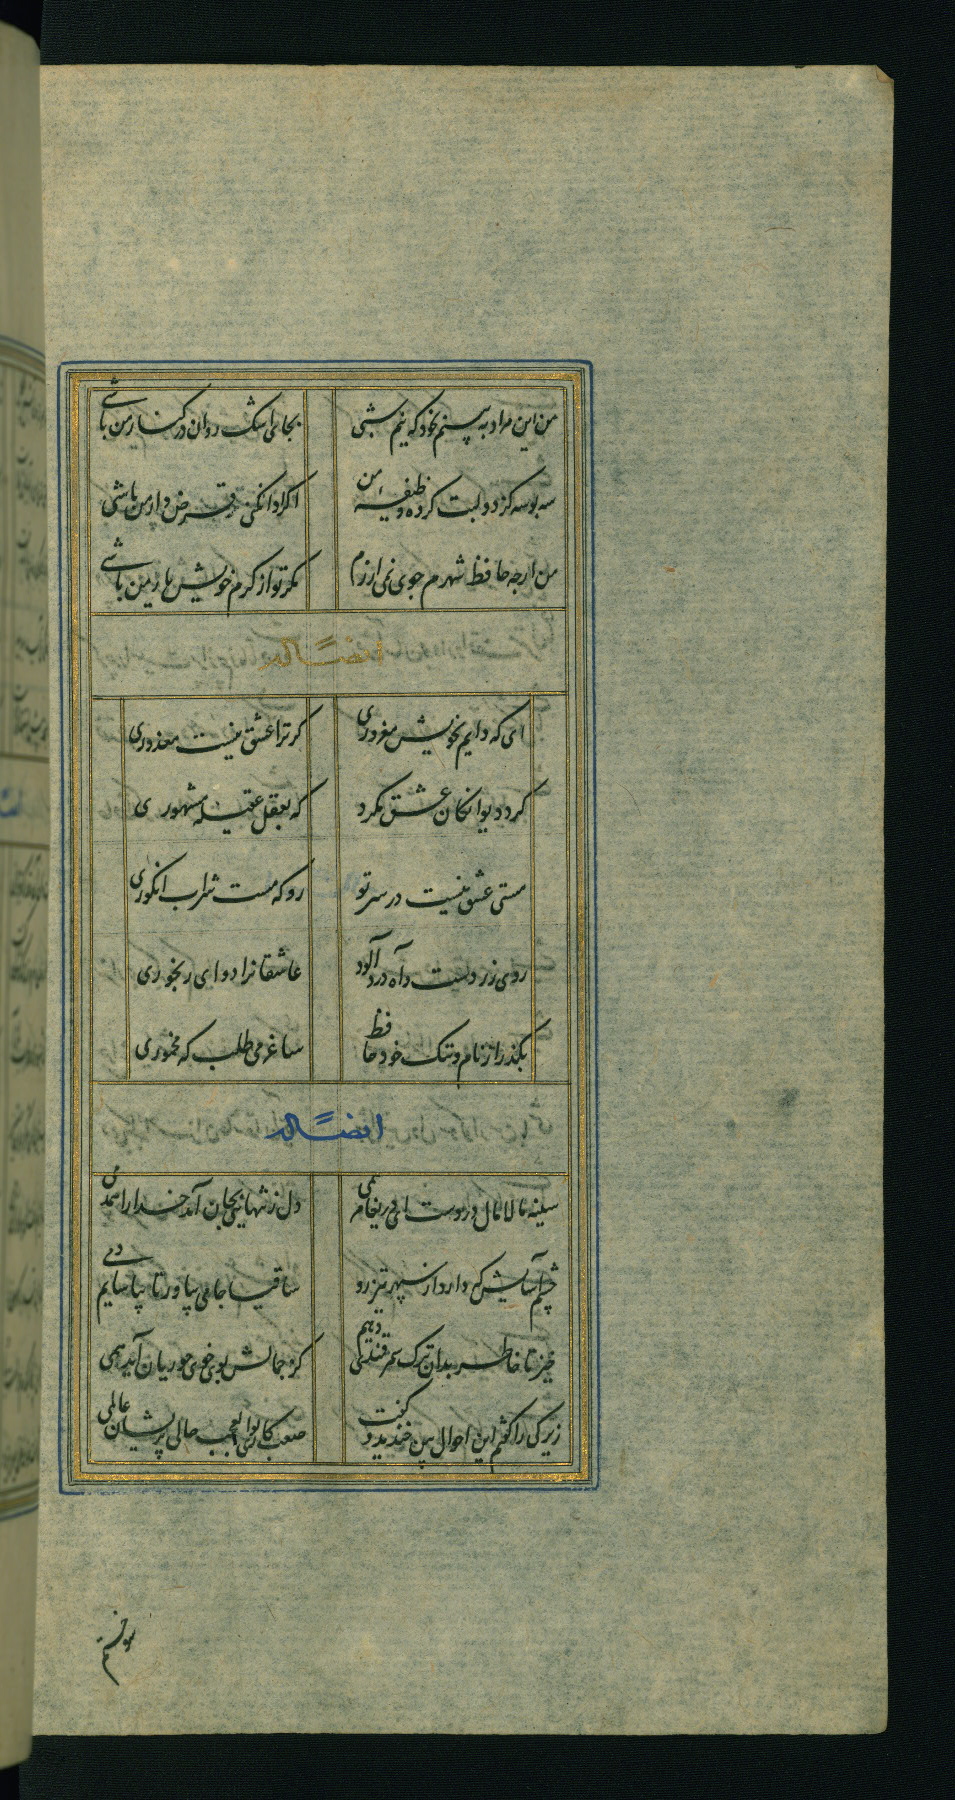 من این مراد به بینم بخود که نیم شبی
بجای اشک روان در کنار من باشی
سه بوسه کز دو لبت کرده وظیفه من
اگر ادا نکنی قرض دار من باشی
من ارچه حافظ شهرم جوی نمی ارزم
مگر تو از کرم خویش یار من باشی
ایضاً له
ای که دایم بخویش مغروری
گر ترا عشق نیست معذوری
گرد دیوانکان عشق مکرد
که بعقل عقیله مشهوری
مستی عشق نیست در سر تو
رو که مست شراب انکوری
روی زردست و آه درد آلود
عاشقانرا دوای رنجوری
بگذر از نام و ننک خود حافظ
ساغر می طلب که مخموری
ایضاً له
سینه مالامال دردست ای دریغا مرهمی
دل ز تنهایی بجان آمد خدا را همدمی
چشم آسایش که دارد از سپهر تیزرو
ساقیا جامی بیاور تا بیاسایم دمی
خیز تا خاطر بدان ترک سمرقندی دهیم
کز جمالش بوی خوی حوریان آید همی
زیرکی را گفتم این احوال بین خندید و گفت
صعب کاری بوالعجب حالی پریشان عالمی
سوختم